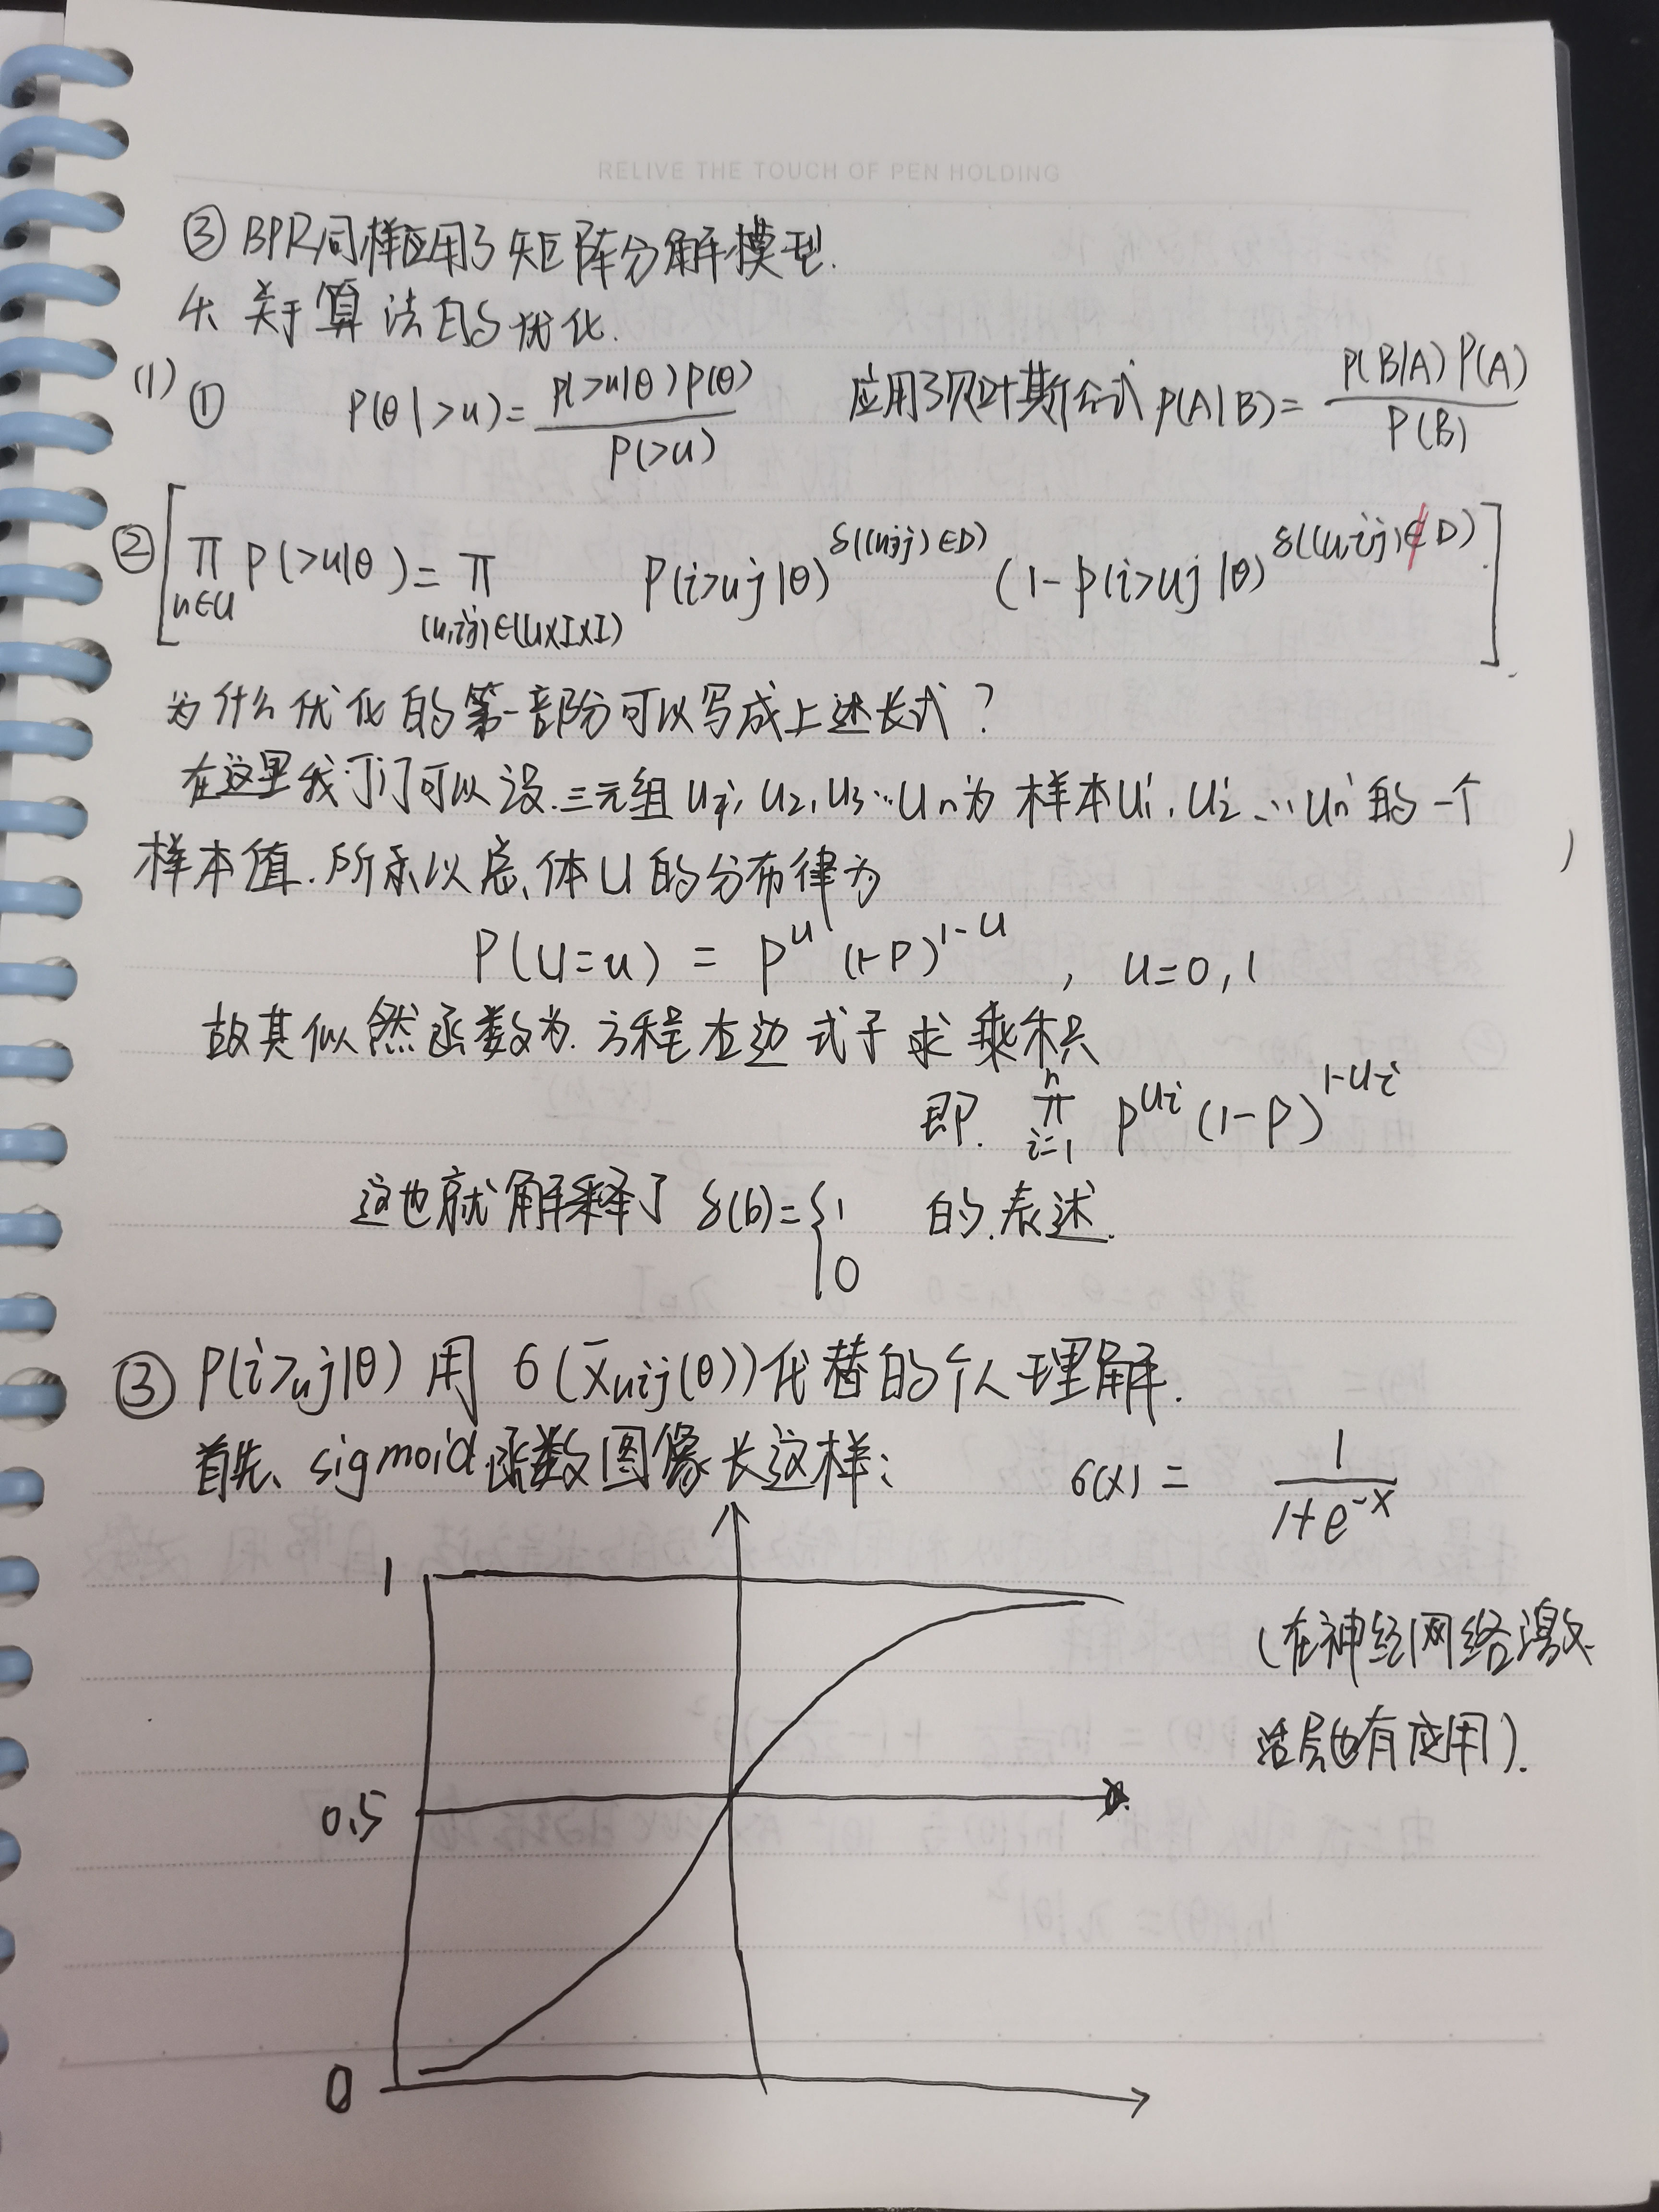 RELIVE THE TOUCH OF PEN HOLDING
③ BPR同样应用了矩阵分解模型.
4、关于算法的优化.
(1) ① P(θ|>u)= P(>u|θ)P(θ) / P(>u) 应用了贝叶斯公式 P(A|B)= P(B|A)P(A) / P(B)
② [ π u∈U P(>u|θ)= π (u,i,j)∈(U×I×I) P(i>uj|θ)^δ((u,i,j)∈D) (1-P(i>uj|θ)^δ((u,i,j)∉D) ]
为什么优化的第一部分可以写成上述长式?
在这里我们可以设.三元组 u₁, u₂, u₃…un为 样本u₁', u₂'、…un'的一个
样本值.所以总体U的分布律为
P(U=u) = P^u (1-P)^1-u , u=0,1
故其似然函数为.方程右边式子求乘积
即. π i=1 n P^ui (1-P)^1-ui
这也就解释了 δ(b)={1 0 的.表述.
③ P(i>uj|θ) 用 6(x̄uij(θ))代替的个人理解.
首先、sigmoid函数图像长这样: 6(x)= 1 / 1+e^-x
1
(在神经网络激
活层也有应用).
0.5
0